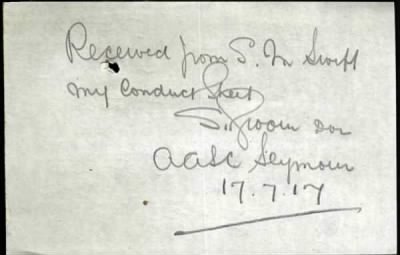 Received from S. M Swift
my Conduct Sheet
S. Groom Dvr
AASC Seymour
17.7.17